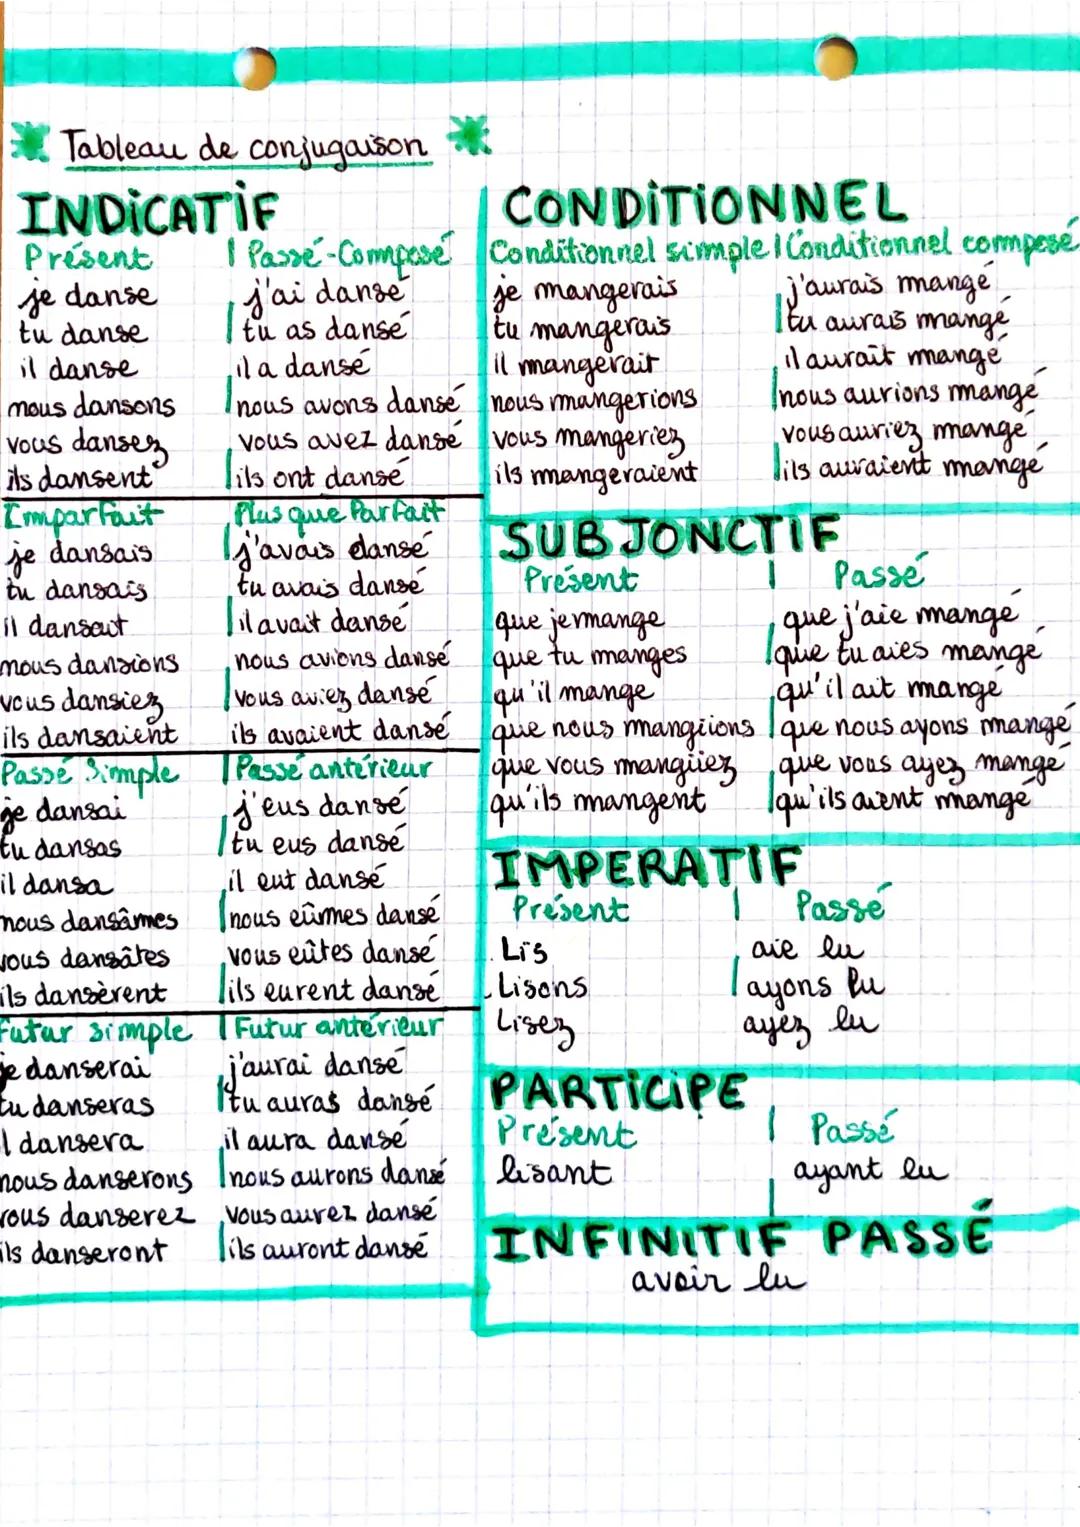 Tableau de conjugaison
INDICATIF
Présent | Passé-Composé
je danse | j'ai dansé
tu danse | tu as dansé
il danse | il a dansé
nous dansons | nous avons dansé
vous dansez | vous avez dansé
ils dansent | ils ont dansé
Imparfait | Plus que Parfait
je dansais | j'avais dansé
tu dansais | tu avais dansé
il dansait | il avait dansé
nous dansions | nous avions dansé
vous dansiez | vous aviez dansé
ils dansaient | ils avaient dansé
Passé Simple | Passé antérieur
je dansai | j'eus dansé
tu dansas | tu eus dansé
il dansa | il eut dansé
nous dansâmes | nous eûmes dansé
vous dansâtes | vous eûtes dansé
ils dansèrent | ils eurent dansé
Futur simple | Futur antérieur
je danserai | j'aurai dansé
tu danseras | tu auras dansé
il dansera | il aura dansé
nous danserons | nous aurons dansé
vous danserez | vous aurez dansé
ils danseront | ils auront dansé
CONDITIONNEL
Conditionnel simple | Conditionnel composé
je mangerais | j'aurais mangé
tu mangerais | tu aurais mangé
il mangerait | il aurait mangé
nous mangerions | nous aurions mangé
vous mangeriez | vous auriez mangé
ils mangeraient | ils auraient mangé
SUBJONCTIF
Présent | Passé
que je mange | que j'aie mangé
que tu manges | que tu aies mangé
qu'il mange | qu'il ait mangé
que nous mangiions | que nous ayons mangé
que vous mangiiez | que vous ayez mangé
qu'ils mangent | qu'ils aient mangé
IMPERATIF
Présent | Passé
Lis | aie lu
Lisons | ayons lu
Lisez | ayez lu
PARTICIPE
Présent | Passé
lisant | ayant lu
INFINITIF PASSÉ
avoir lu